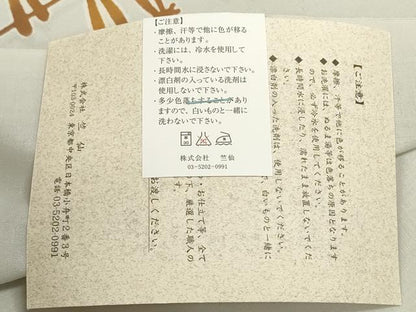 【ご注意】
・摩擦、汗等で他に色が移る
ことがあります。
・洗濯には、冷水を使用して
下さい。
・長時間水に浸さないで下さい。
・漂白剤の入っている洗剤は
使用しないで下さい。
・多少色落ちすることがあり
ますので、白いものと一緒に
洗わないで下さい。
株式会社 竺仙
03-5202-0991
【ご注意】
◆摩擦、汗等で他に色が移ることがあります。
◆お洗濯には、ぬるま湯等は色落ちの原因となります
ので、必ず冷水を使用してください。
◆長時間水に浸したり、濡れたまま放置しないでくだ
さい。
◆漂白剤の入った洗剤は、使用しないでください。
白いものと一緒に
・お仕立て等、全て
下、厳選した職人の
お渡しください。
株式会社 竺仙
東京都中央区日本橋小舟町2番3号
電話 03-5202-0991